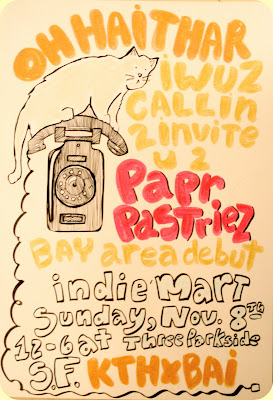 OH HAI THAR
I WUZ
CALLIN
2 invite
u 2
PaPr
PaSTriez
BAY area debut
indie Mart
Sunday, Nov. 8th
12-6 at Three Parkside
S.F. KTHXBAI.